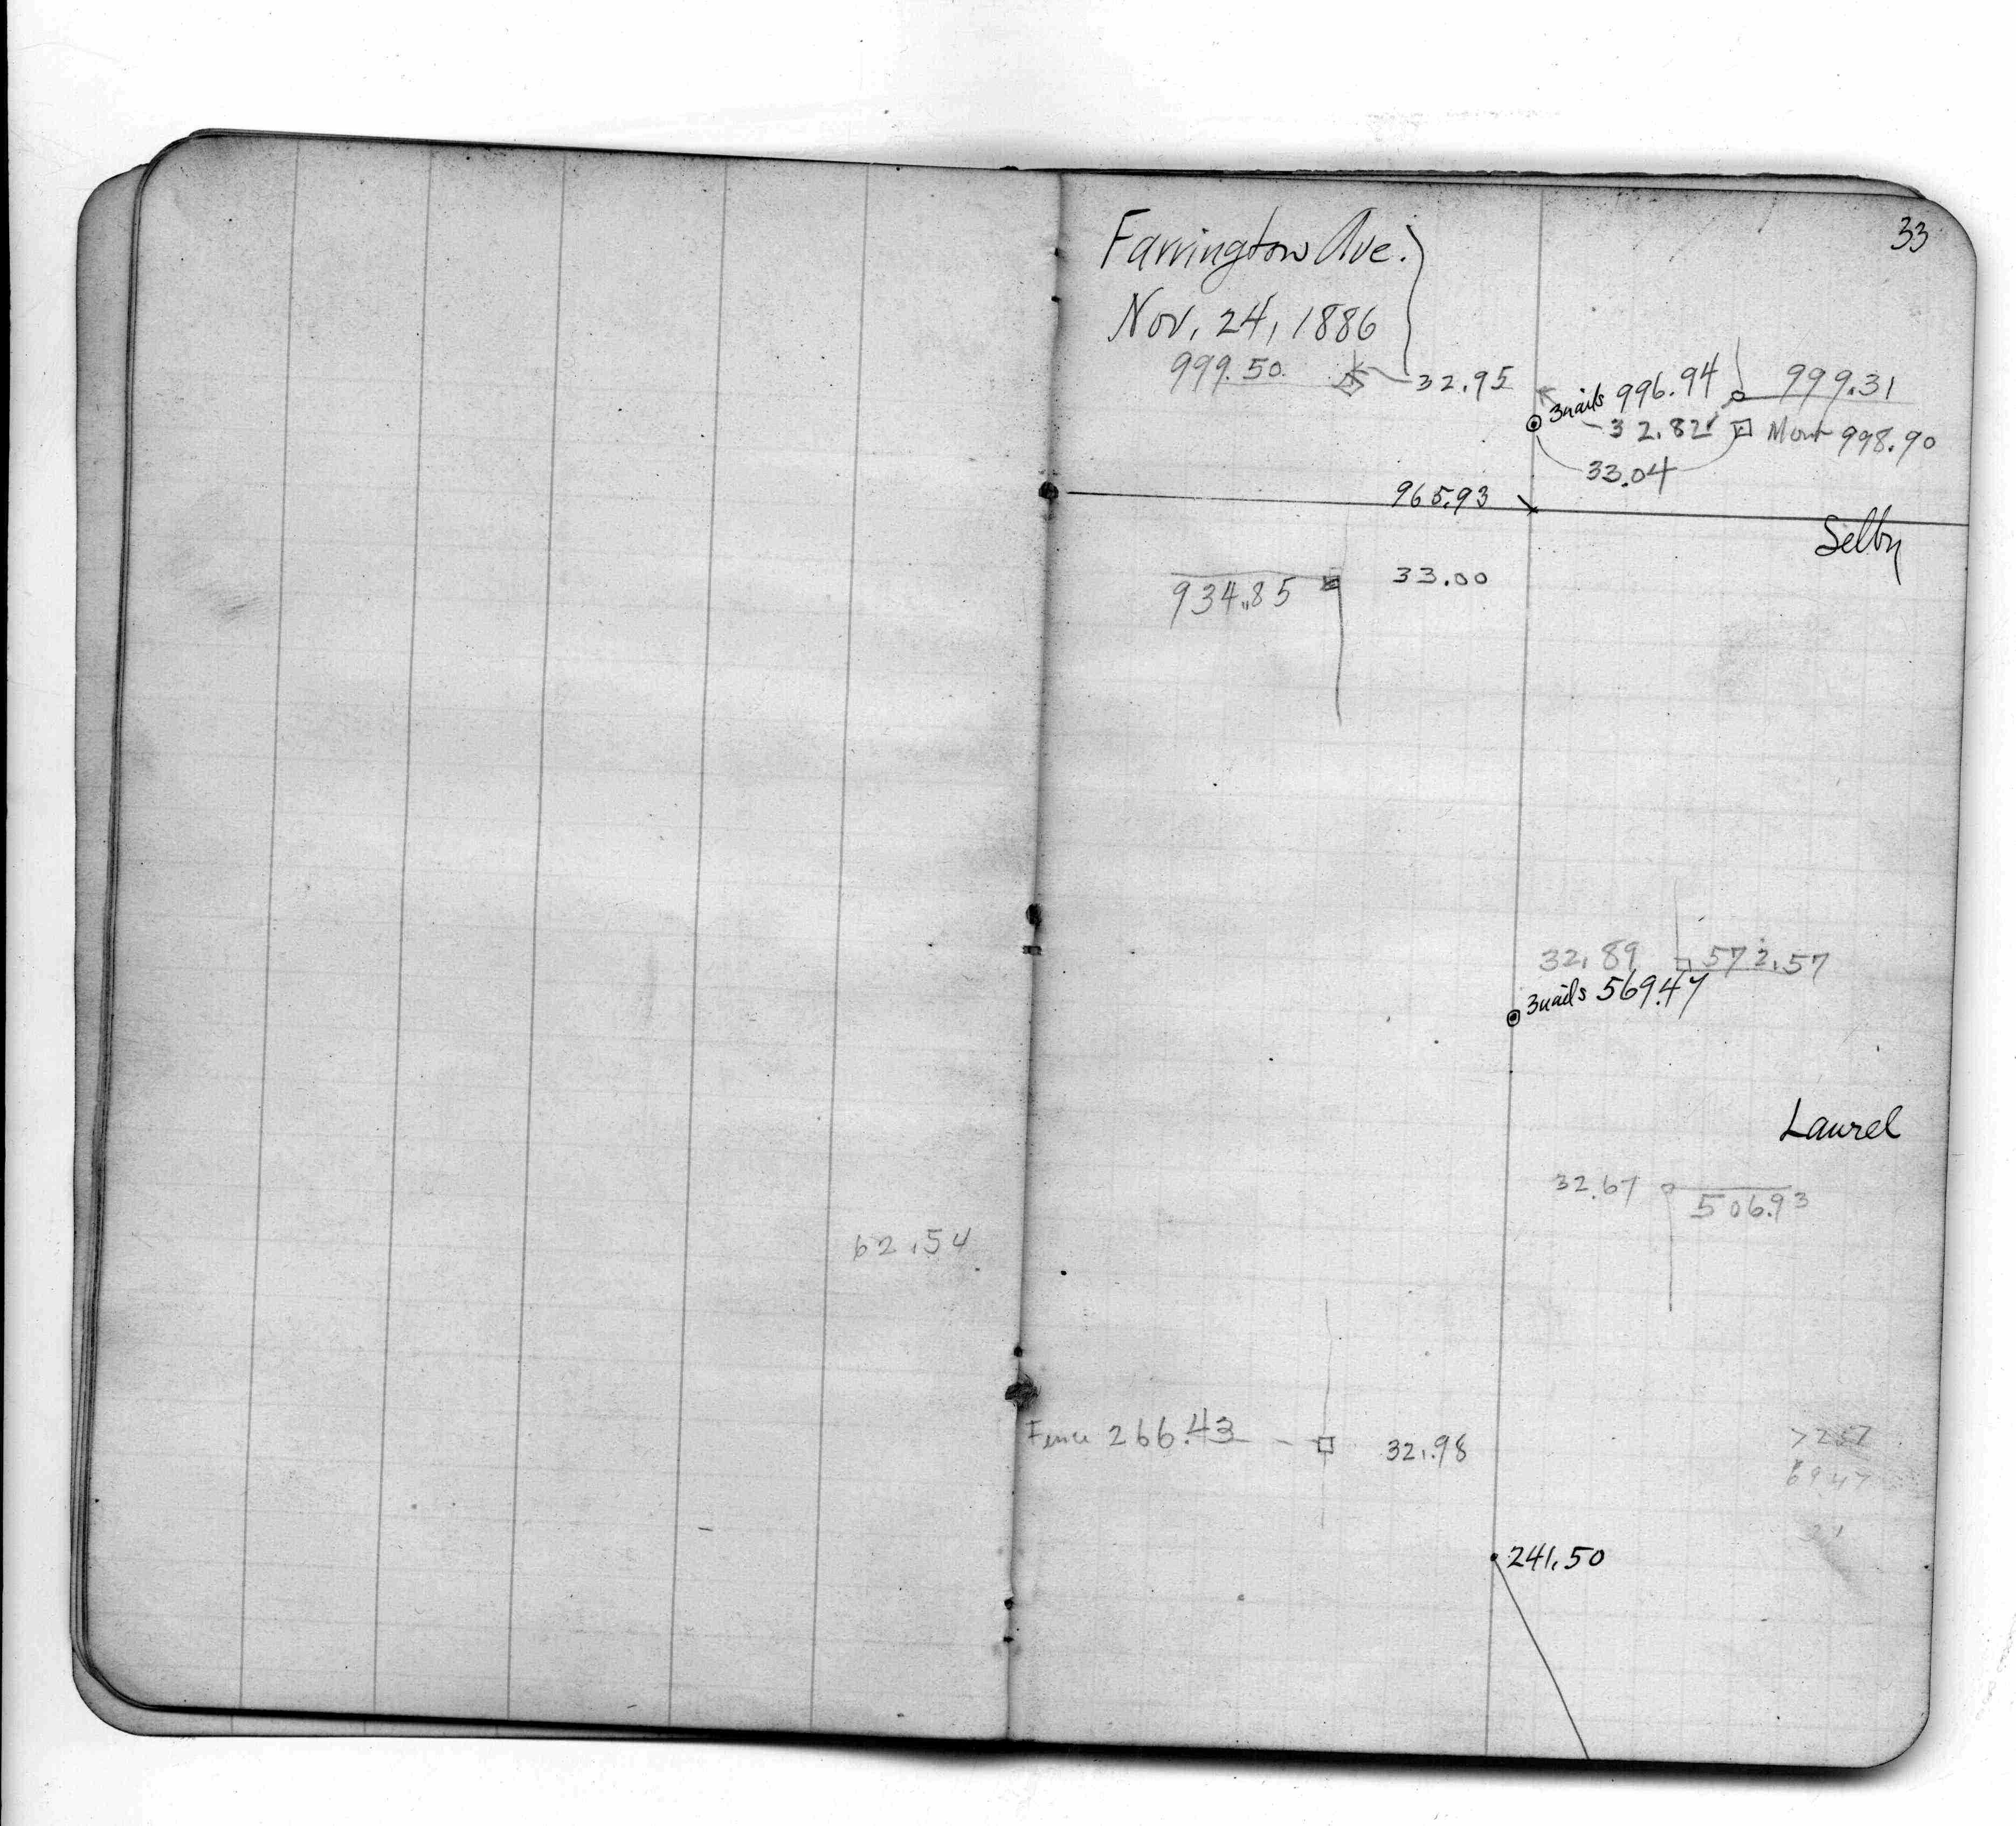 33
Farrington Ave.
Nov. 24, 1886
999.50 32.95 3 nails 996.94 999.31
32.82 Mon 998.90
33.04
965.93
Selby
934.85 33.00
32.89 572.57
3 nails 569.47
Laurel
32.67 506.93
62.54
Fence 266.43 32.98
69.47
241.50